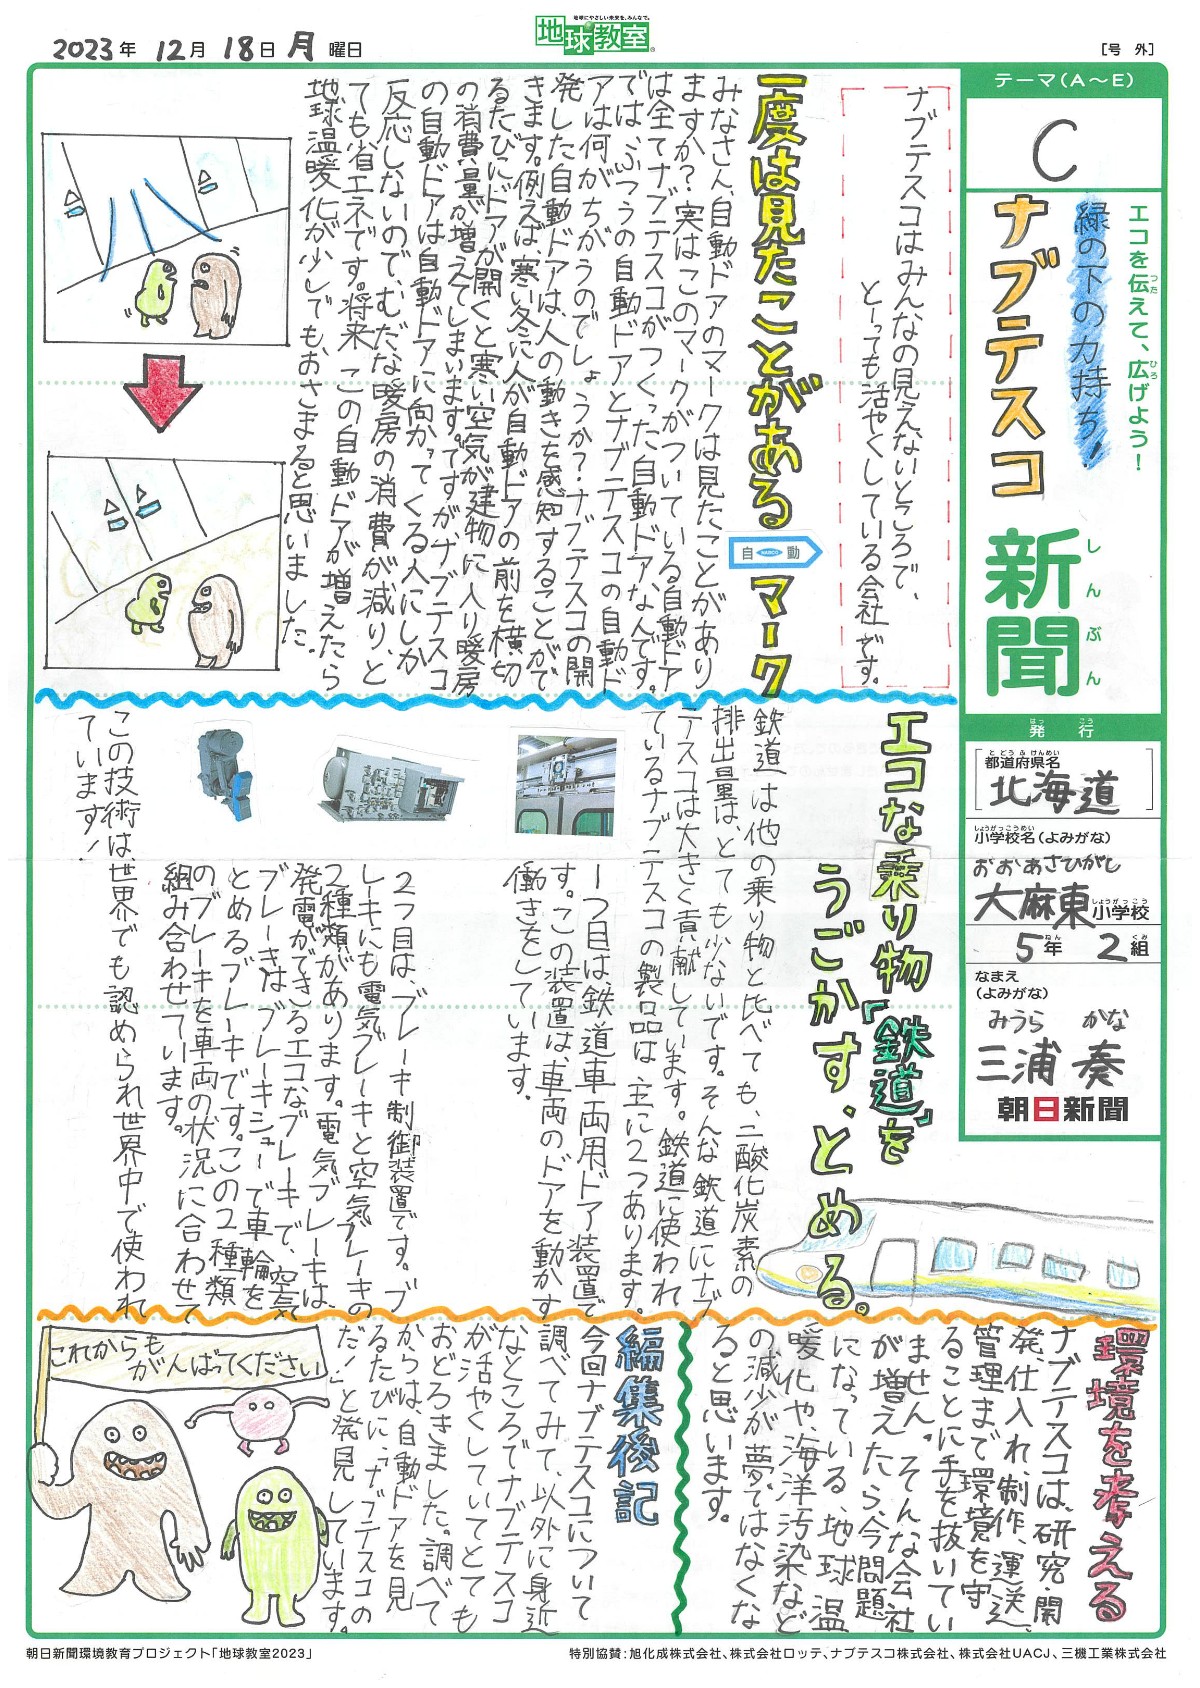 2023年 12月 18日 月 曜日
地球にやさしい未来を、みんなで。
地球教室
［号 外］
テーマ(A〜E)
C
エコを伝えて、広げよう！
つた
ひろ
緑の下の力持ち！
ナブテスコ
新聞
しんぶん
はっ こう
発 行
とどうふけんめい
都道府県名
北海道
しょうがっこうめい
小学校名(よみがな)
おおあさひがし
大麻東小学校
しょうがっこう
ねん くみ
5年 2組
なまえ
(よみがな)
みうら かな
三浦 奏
朝日新聞
ナブテスコはみんなの見えないところで、
とーっても活やくしている会社です。
一度は見たことがある
自 NABCO 動
マーク
みなさん、自動ドアのマークは見たことがあり
ますか？実はこのマークがついている自動ドア
は全てナブテスコがつくった自動ドアなんです。
では、ふつうの自動ドアとナブテスコの自動ド
アは何がちがうのでしょうか？ナブテスコの開
発した自動ドアは人の動きを感知することがで
きます。例えば、寒い冬に人が自動ドアの前を横切
るたびにドアが開くと寒い空気が建物に入り暖房
の消費量が増えてしまいます。ですがナブテスコ
の自動ドアは自動ドアに向かってくる人にしか
反応しないので、むだな暖房の消費が減り、と
ても省エネです。将来、この自動ドアが増えたら
地球温暖化が少しでもおさまると思いました。
エコな乗り物「鉄道」を
うごかす、とめる。
鉄道は他の乗り物と比べても、二酸化炭素の
排出量は、とても少ないです。そんな鉄道にナブ
テスコは大きく貢献しています。鉄道に使われ
ているナブテスコの製品は、主に2つあります。
1つ目は、鉄道車両用ドア装置で
す。この装置は、車両のドアを動かす
働きをしています。
2つ目は、ブレーキ制御装置です。ブ
レーキにも電気ブレーキと空気ブレーキの
2種類があります。電気ブレーキは、
発電ができるエコなブレーキで、空気
ブレーキは、ブレーキシューで車輪を
とめるブレーキです。この2種類
のブレーキを車両の状況に合わせて
組み合わせています。
この技術は、世界でも認められ世界中で使われ
ています！
環境を考える
ナブテスコは、研究・開
発、仕入れ、制作、運送、
管理まで環境を守
ることに手を抜いてい
ません。そんな会社
が増えたら、今問題
になっている、地球温
暖化や、海洋汚染など
の減少が夢ではなくな
ると思います。
編集後記
今回ナブテスコについて
調べてみて、以外に身近
なところでナブテスコ
が活やくしていてとても
おどろきました。調べて
からは、自動ドアを見
るたびに、「ナブテスコの
だ！」と発見しています。
これからも
がんばってください
朝日新聞環境教育プロジェクト「地球教室2023」
特別協賛：旭化成株式会社、株式会社ロッテ、ナブテスコ株式会社、株式会社UACJ、三機工業株式会社